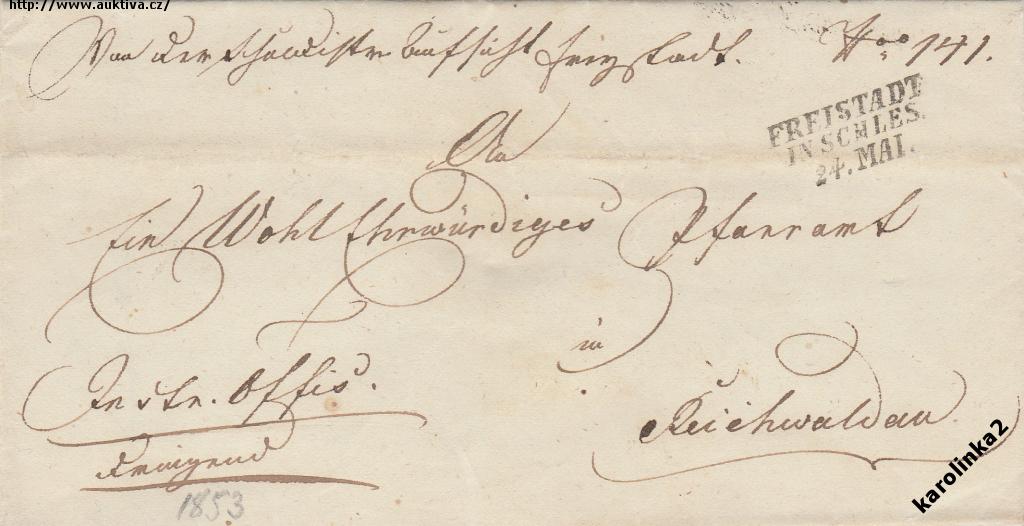 http://www.auktiva.cz/
Von der Schuldistr. Aufsicht Freystadt. Nro 141.
FREISTADT
IN SCHLES.
24. MAI.
An
Ein Wohl Ehrwürdiges Pfarramt
in
Reichwaldau
Offis.
dringend
1853
karolinka2